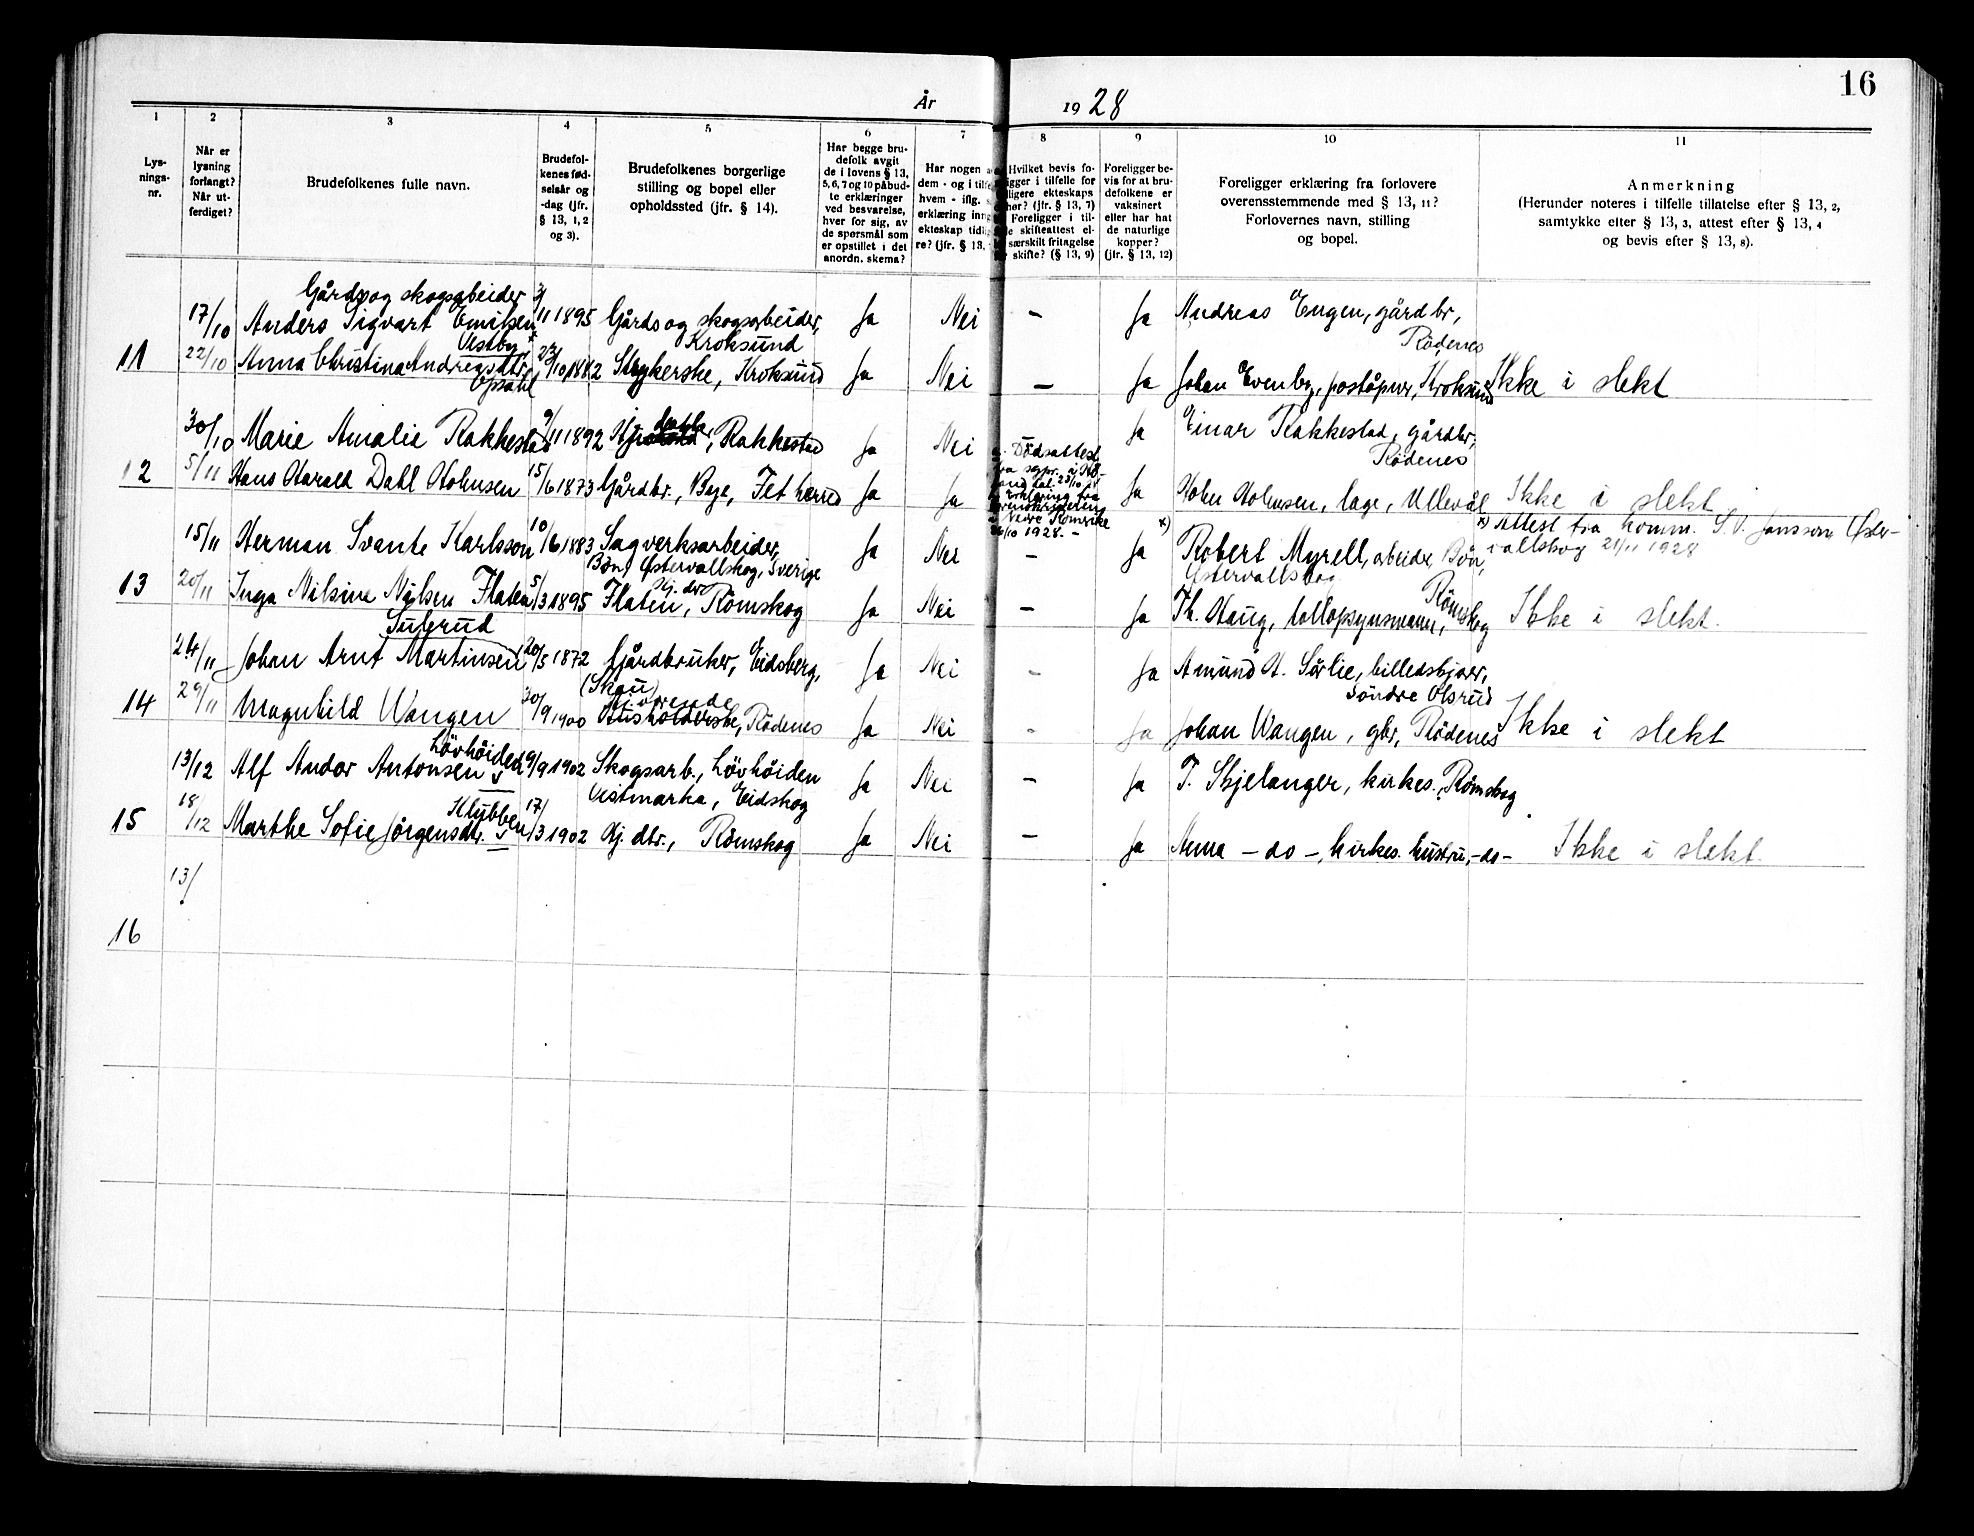 16
År 1928
1 2 3 4 5 6 7 8 9 10 11
Lys-
nings-
nr.
Når er
lysning
forlangt?
Når ut-
ferdiget?
Brudefolkenes fulle navn.
Brudefol-
kenes fød-
selsår og
-dag (jfr.
§ 13, 1, 2
og 3).
Brudefolkenes borgerlige
stilling og bopel eller
opholdssted (jfr. § 14).
Har begge bru-
defolk avgit
de i lovens § 13,
5, 6, 7 og 10 påbud-
te erklæringer
ved besvarelse,
hver for sig, av
de spørsmål som
er opstillet i det
anordn. skema?
Har nogen a
dem - og i tilfe
hvem - iflg. s
erklæring inng
ekteskap tidlig
re? (jfr. § 13,
Hvilket bevis fo-
ligger i tilfelle for
ligere ekteskaps
hør? (jfr. § 13, 7)
Foreligger i til-
le skifteattest el-
særskilt fritagelse
skifte? (§ 13, 9)
Foreligger be-
vis for at bru-
defolkene er
vaksinert
eller har hat
de naturlige
kopper?
(jfr. § 13, 12)
Foreligger erklæring fra forlovere
overensstemmende med § 13, 11?
Forlovernes navn, stilling
og bopel.
Anmerkning
(Herunder noteres i tilfelle tillatelse efter § 13, 2,
samtykke efter § 13, 3, attest efter § 13, 4
og bevis efter § 13, 8).
Gårds og skogsarbeider
17/10 Anders Sigvart Emilsen 3/11 1895 Gårds og skogsarbeider, Ja Nei — Ja Andreas Engen, gårdbr,
Vestby Kroksund Rødenes
11 22/10 Anna Christina Andreasdtr. 23/10 1882 Strykerske, Kroksund Ja Nei — Ja Johan Evenby, poståpner, Kroksund Ikke i slekt
Opsahl
30/10 Marie Amalie Rakkestad 9/11 1892 Rakkestad Ja Nei Ja Einar Rakkestad, gårdbr,
Rødenes
12 5/11 Hans Harald Dahl Holmsen 15/6 1873 Gårdbr., Bye, Fet herred Ja Ja Dødsattest Ja Holm Holmsen, læge, Ullevål Ikke i slekt
Nedre Romerike
/10 1928. -
15/11 Herman Svante Karlsson 10/6 1883 Sagverksarbeider, Ja Nei — x) Ja Robert Myrell, arbeider, Bön, x) Attest fra komm. S. V. Jansson Öster-
Bön, Östervallskog, Sverige Östervallskog vallskog 21/11 1928
13 20/11 Inga Nilsine Nilsen Flaten 5/3 1895 Hj. dtr. Flaten, Rømskog Ja Nei — Ja Th. Haug, tollopsynsmann, Rømskog Ikke i slekt.
Sulerud
24/11 Johan Arnt Martinsen 20/5 1872 Gårdbruker, Eidsberg, Ja Nei — Ja Amund H. Sørlie, billedskjærer,
(Skau) Søndre Olsrud
14 29/11 Magnhild Wangen 30/9 1900 Hj. værende Husholderske, Rødenes Ja Nei - Ja Johan Wangen, gbr, Rødenes Ikke i slekt
Lövhöiden
13/12 Alf Andor Antonsen 9/9 1902 Skogsarb., Lövhöiden Ja Nei — Ja T. Skjelanger, kirkes. Rømskog
Klubben Vestmarka, Eidskog
15 18/12 Marthe Sofie Jörgensdtr. 17/3 1902 Hj. dtr., Rømskog Ja Nei — Ja Anna — do —, kirkes. hustru, -do- Ikke i slekt.
13/
16